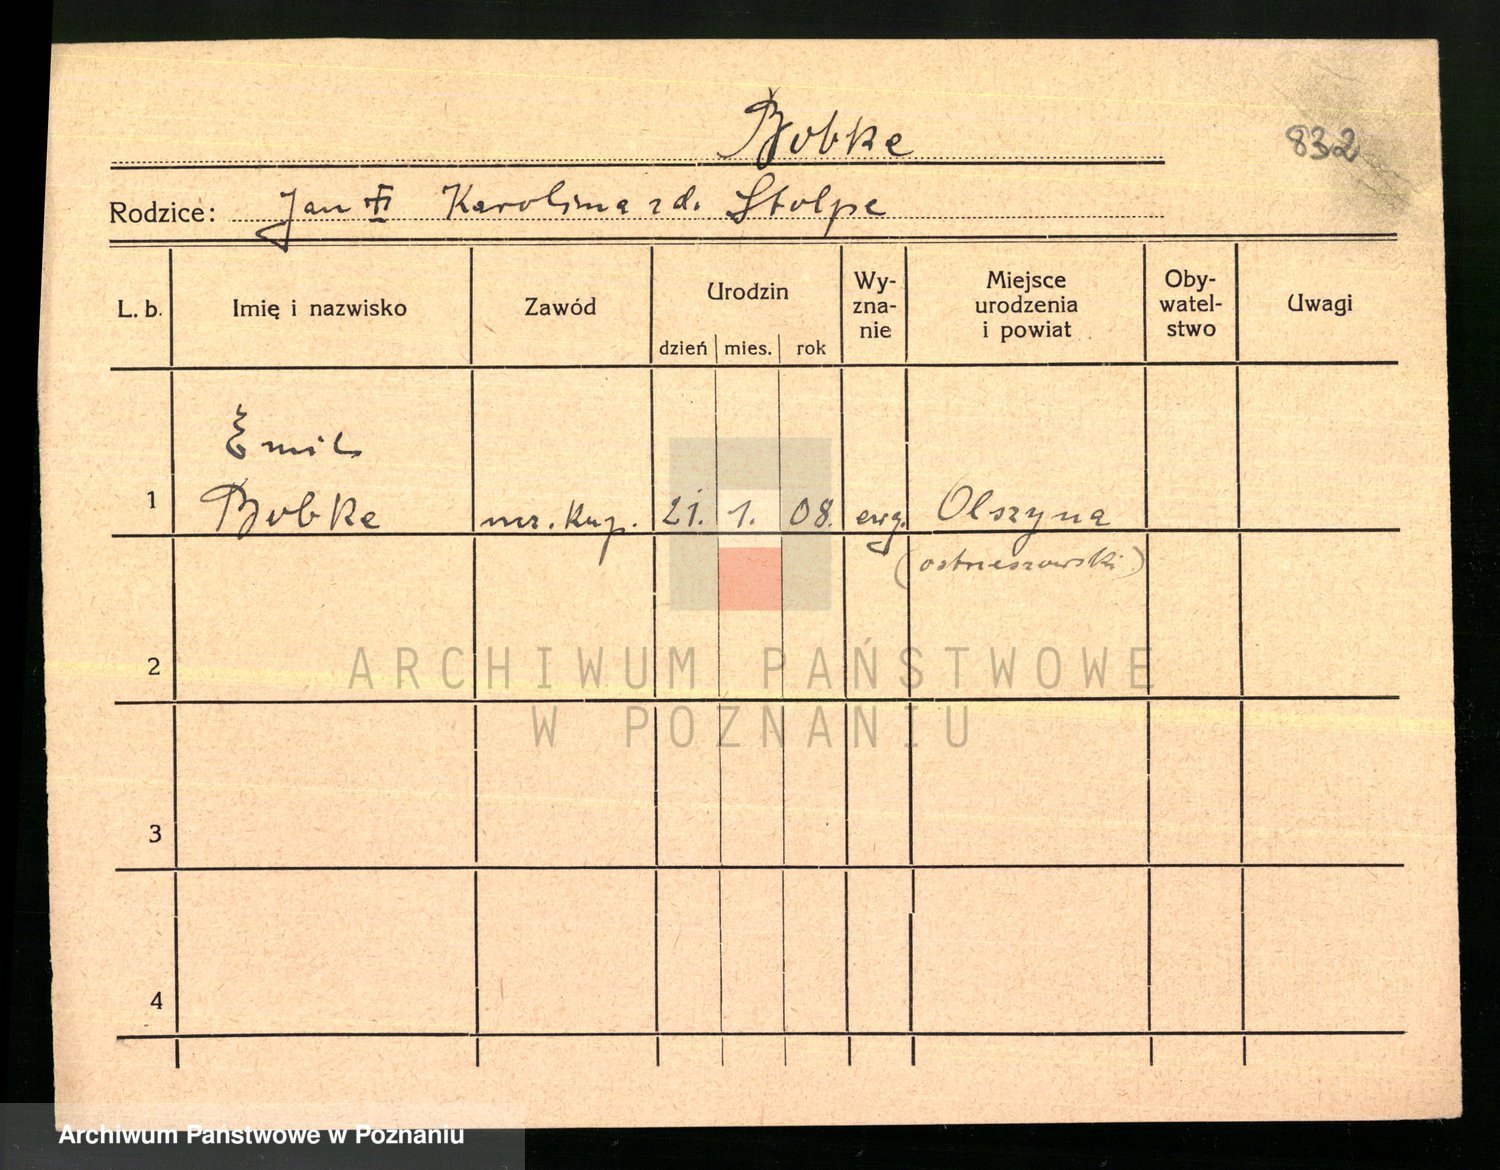 Bobke
832
Rodzice: Jan Karolina zd. Stolpe
L. b. Imię i nazwisko Zawód Urodzin dzień mies. rok Wy-zna-nie Miejsce urodzenia i powiat Oby-watel-stwo Uwagi
Emil
1 Bobke ucz. kup. 21. 1. 08. ewg. Olszyna
(ostrzeszowski)
2
ARCHIWUM PAŃSTWOWE
W POZNANIU
3
4
Archiwum Państwowe w Poznaniu